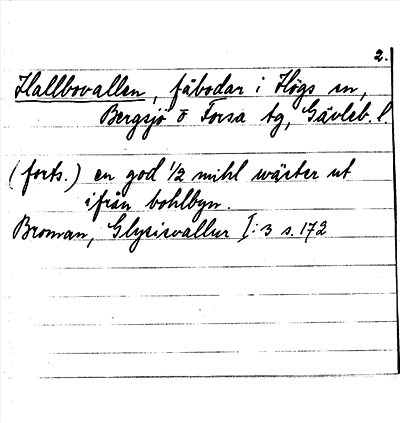 2.
Hallbovallen, fäbodar i Högs sn,
Bergsjö o Forsa tg, Gävleb. l
(forts.) en god 1/2 mihl wäster ut
ifrån bohlbyn.
Broman, Glysisvallur I:3 s. 172